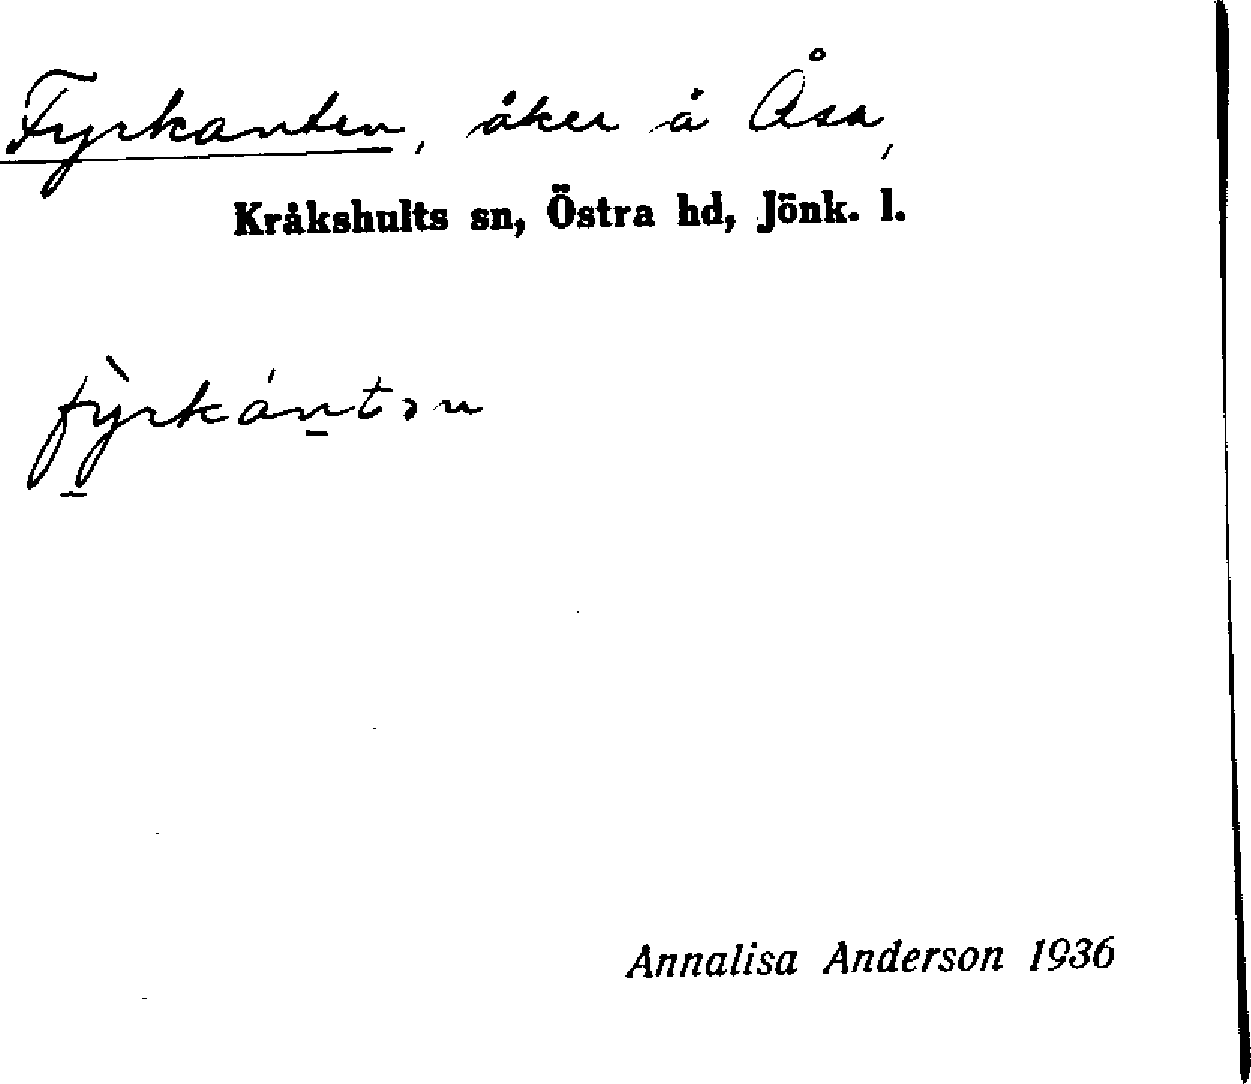 Fyrkanten, åker å Åsa,
Kråkshults sn, Östra hd, Jönk. l.
fỳ̱rkáṉtən
Annalisa Anderson 1936